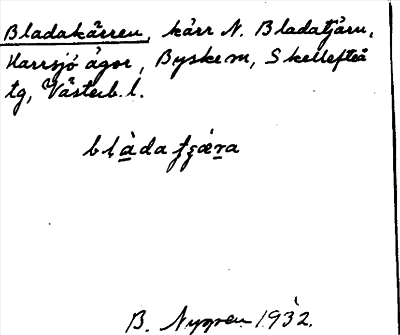 Bladakärren, kärr N. Bladatjärn,
Harrsjö ägor, Byske m, Skellefteå
tg, Västerb. l.
B. Nygren 1932.